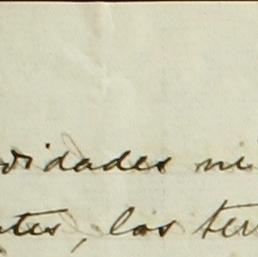 vidades ni
ntes, los ter